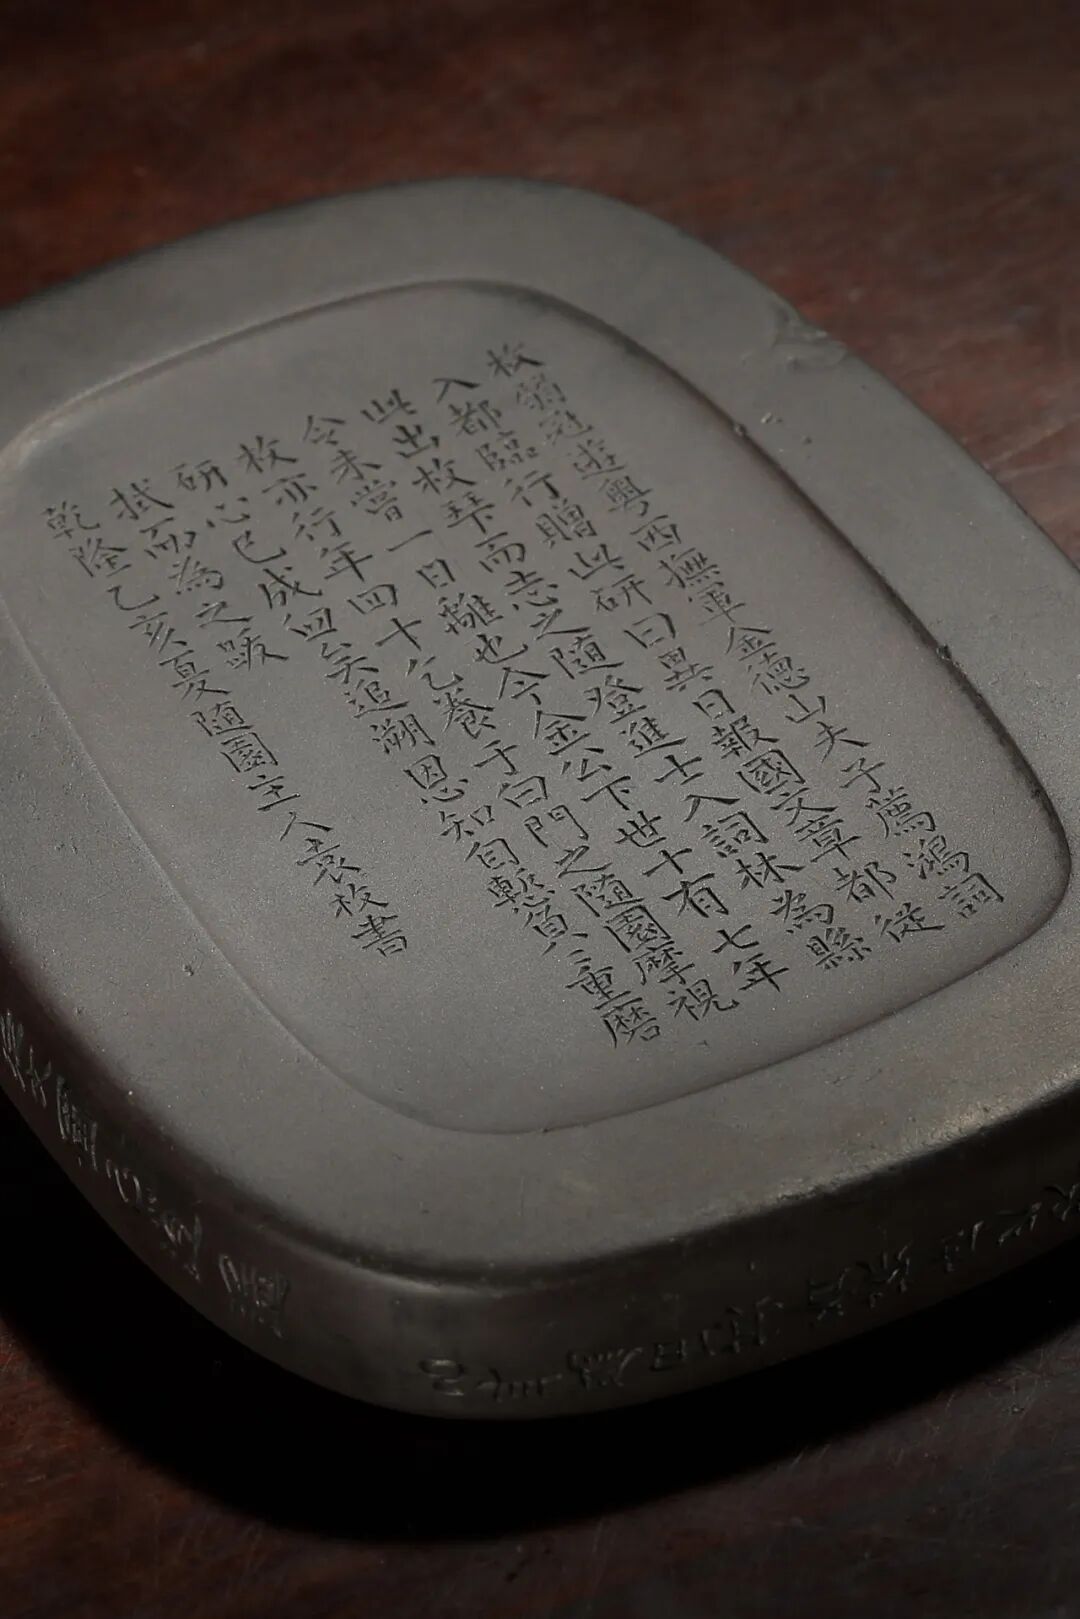 枚弱冠遊粵西撫軍金德山夫子薦鴻詞
入都臨行贈此研曰異日報國文章都從
此出枚拜而志之隨登進士入詞林為縣
令未嘗一日離也今金公下世十有七年
枚亦行年四十乞養于白門之隨園摩視
研心已成臼矣追溯恩知自慙負二重磨
拭而為之跋
乾隆乙亥夏隨園主人袁枚書